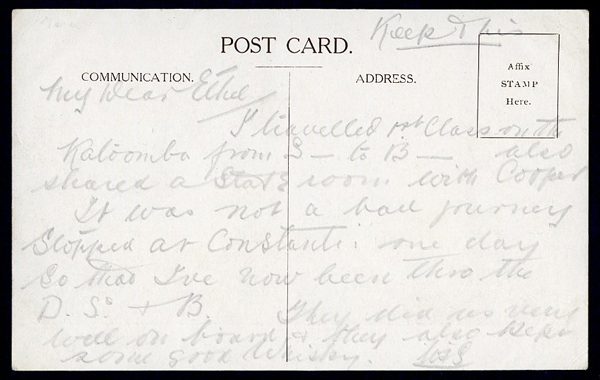 Keep This
POST CARD.
COMMUNICATION.
ADDRESS.
Affix
STAMP
Here.
My Dear Ethel
I travelled 1st Class on the
Katoomba from S — to B — also
shared a State room with Cooper
It was not a bad journey
Stopped at Constanti: one day
So that I've now been thro the
D. S. + B. They did us very
well on board & they also kept
some good whisky.